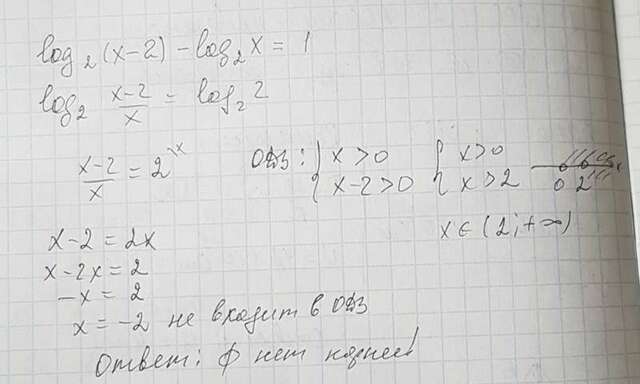 log₂(x-2) - log₂x = 1
log₂ (x-2)/x = log₂2
(x-2)/x = 2 \x ОДЗ: { x>0 x-2>0 { x>0 x>2 0 2
x-2 = 2x x∈(2;+∞)
x-2x = 2
-x = 2
x = -2 не входит в ОДЗ
Ответ: ϕ нет корней!